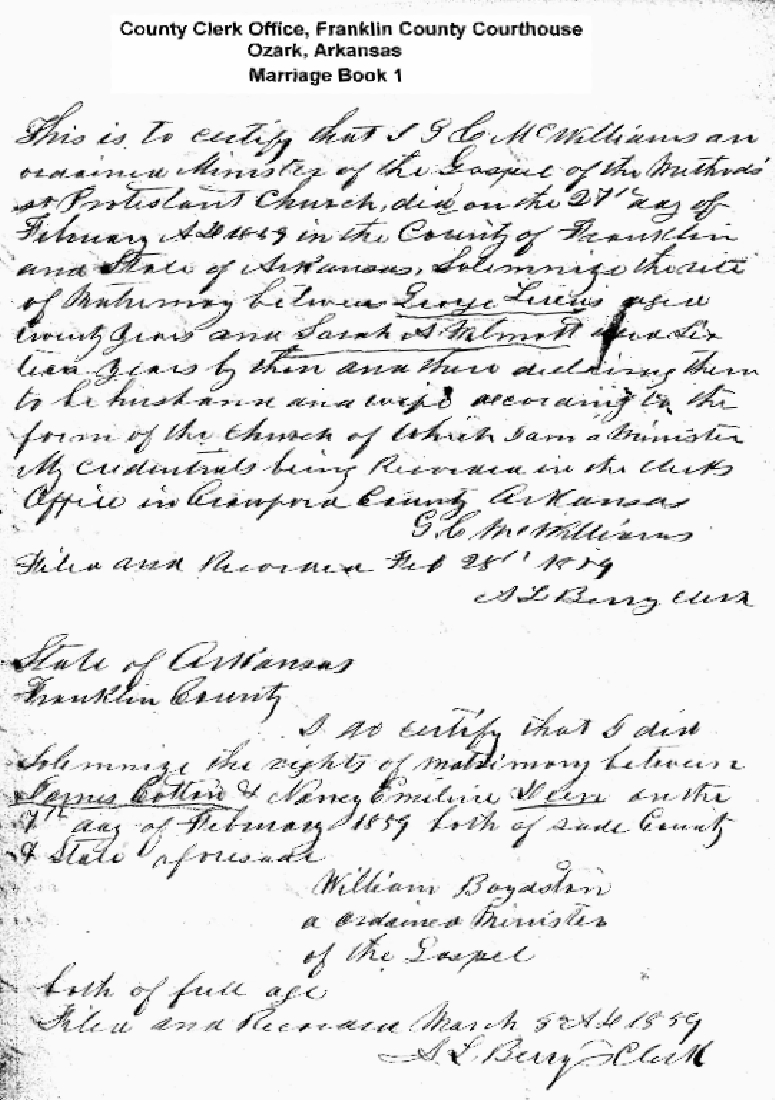 County Clerk Office, Franklin County Courthouse
Ozark, Arkansas
Marriage Book 1
This is to certify that I G C McWilliams an
ordained Minister of the Gospel of the Methodi
st Protestant Church, did on the 27th day of
February AD 1859 in the County of Franklin
and State of Arkansas, Solemnize the rite
of Matrimony between George aged
twenty years and Sarah A Six
teen years by then and there declaring them
to be husband and wife according to the
form of the Church of which I am a Minister
My Credentials being Recorded in the Clerks
Office in Crawford County Arkansas
G. C. McWilliams
Filed and Recorded Feb 28th 1859
A L Berry Clerk
State of Arkansas
Franklin County
I do certify that I did
Solemnize the rights of matrimony between
James & Nancy Emiline on the
7th day of February 1859 both of sade County
& State aforesade
William Boydston
a ordained Minister
of the Gospel
both of full age
Filed and Recorded March AD 1859
A L Berry Clerk